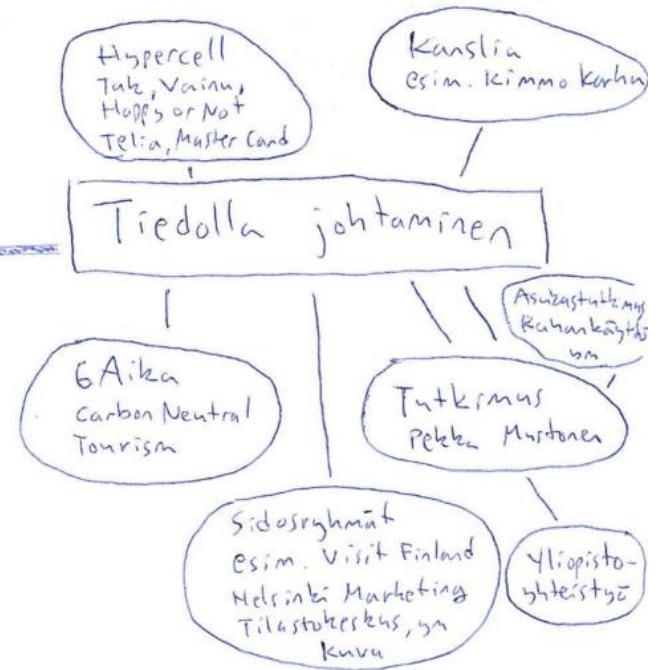 Hypercell
Tak, Vainu,
Happy or Not
Telia, Master Card
Kanslia
esim. Kimmo Karhu
Tiedolla johtaminen
Asukastutkimus
Rahankäyttö
ym
6Aika
Carbon Neutral
Tourism
Tutkimus
Pekka Mustonen
Sidosryhmät
esim. Visit Finland
Helsinki Marketing
Tilastokeskus, ym
Kuva
Yliopisto-
yhteistyö